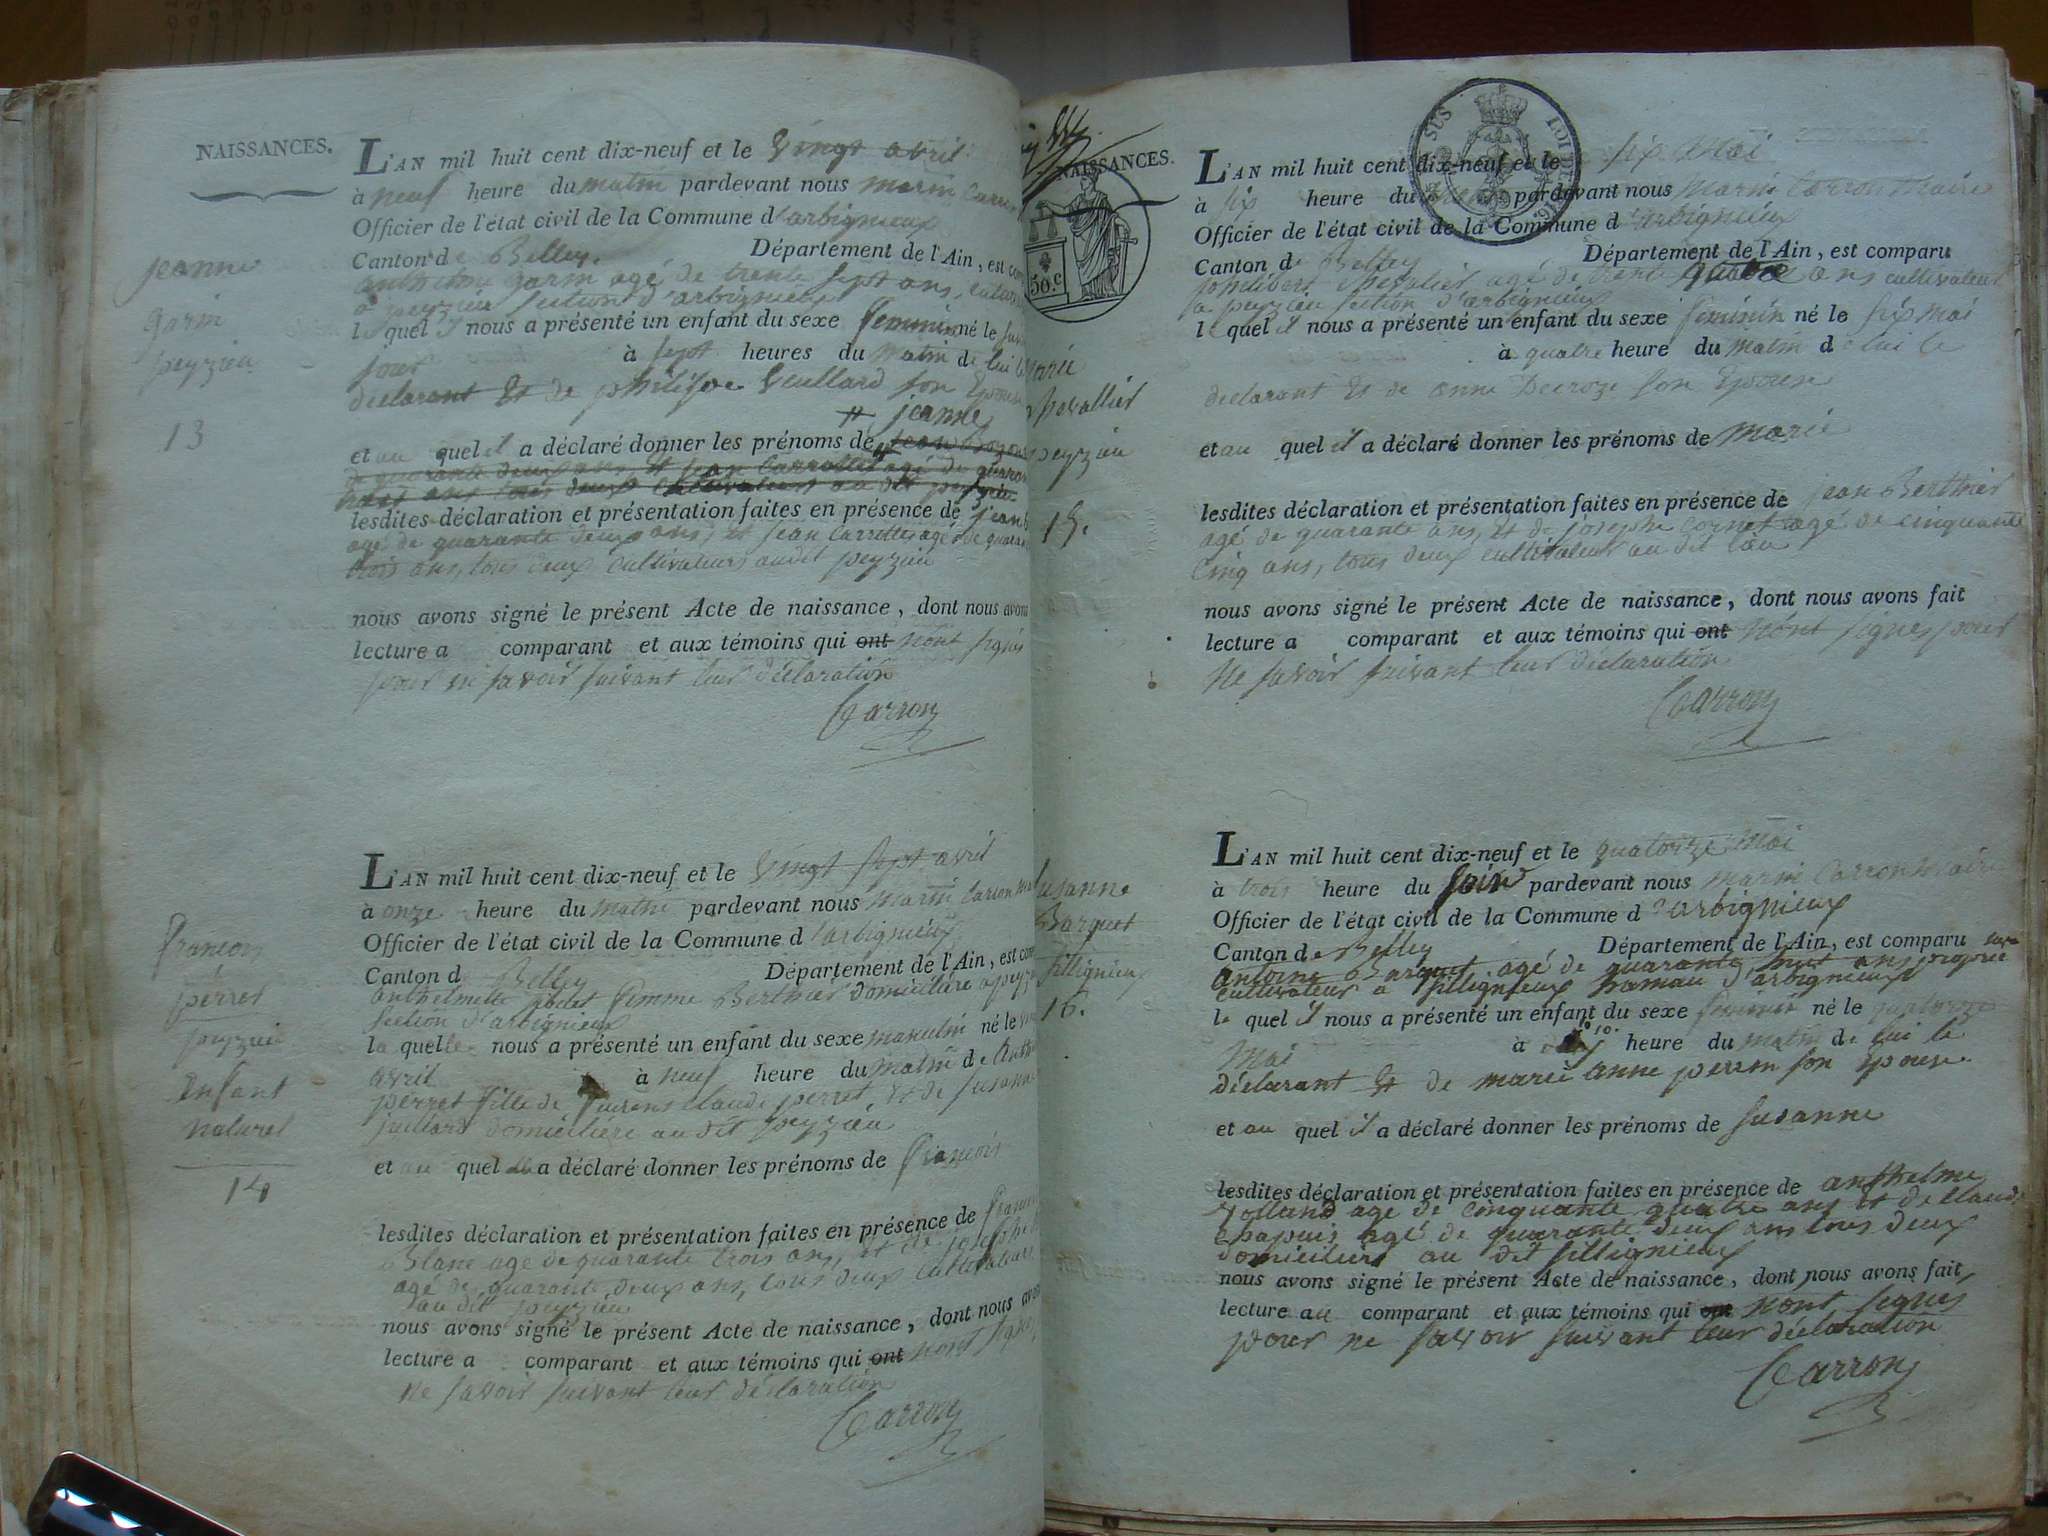 NAISSANCES.
L'AN mil huit cent dix-neuf et le vingt avril
à neuf heure du matin pardevant nous marin
Officier de l'état civil de la Commune d'arbignieux
Canton de Belley Département de l'Ain, est
anthelme garin agé de trente sept ans,
a peyzieu section d'arbignieux
le quel il nous a présenté un enfant du sexe feminin né le
jour à sept heures du matin de lui
déclarant Et de Vuillard son Epouse
# jeanne
et au quel il a déclaré donner les prénoms de
de quarante deux ans, Et jean Carrottes agé de
trois ans tous deux cultivateurs au dit peyzieu
lesdites déclaration et présentation faites en présence de jean
agé de quarante deux ans, et jean Carrottes agé de
trois ans, tous deux cultivateurs audit peyzieu
nous avons signé le présent Acte de naissance, dont nous
lecture a comparant et aux témoins qui ont nont signés
pour ne savoir suivant leur déclaration
Carron
jeanne
garin
peyzieu
13
L'AN mil huit cent dix-neuf et le vingt sept avril
à onze heure du matin pardevant nous marin Carron
Officier de l'état civil de la Commune d'arbignieux
Canton de Belley Département de l'Ain, est
femme Berthier domiciliere a
section d'arbignieux
la quelle nous a présenté un enfant du sexe masculin né le
avril à neuf heure du matin de
perret fille de claude perret, Et de Susanne
juillard domiciliere au dit peyzieu
et au quel a déclaré donner les prénoms de françois
lesdites déclaration et présentation faites en présence de
Blanc age de quarante trois ans, et de joseph
agé de quarante deux ans, tous deux cultivateurs
au dit peyzieu
nous avons signé le présent Acte de naissance, dont nous
lecture a comparant et aux témoins qui ont nont
ne savoir suivant leur déclaration
Carron
francois
perret
peyzieu
Enfant
naturel
14
NAISSANCES.
50.c
L'AN mil huit cent dix-neuf et le six Mai
à six heure du pardevant nous Marin Carron Maire
Officier de l'état civil de la Commune d'arbignieux
Canton de Belley Département de l'Ain, est comparu
philibert chevalier agé de trente quatre ans cultivateur
a peyzieu section d'arbignieux
le quel il nous a présenté un enfant du sexe feminin né le six mai
à quatre heure du matin de lui le
declarant Et de anne Decroze son Epouse
et au quel il a déclaré donner les prénoms de marie
lesdites déclaration et présentation faites en présence de jean Berthier
agé de quarante ans, Et de josephe cornet agé de cinquante
cinq ans, tous deux cultivateur au dit lieu
nous avons signé le présent Acte de naissance, dont nous avons fait
lecture a comparant et aux témoins qui ont nont signes pour
Ne savoir suivant leur déclaration
Carron
chevallier
peyzieu
15.
L'AN mil huit cent dix-neuf et le quatorze Mai
à trois heure du soir pardevant nous Marin Carron Maire
Officier de l'état civil de la Commune d'arbignieux
Canton de Belley Département de l'Ain, est comparu
antoine Barquet agé de quarante huit ans
cultivateur a Sillignieux hamau d'arbignieux
le quel il nous a présenté un enfant du sexe feminin né le quatorze
Mai à heure du matin de lui le
déclarant Et de marie anne perrin son epouse.
et au quel il a déclaré donner les prénoms de susanne
lesdites déclaration et présentation faites en présence de anthelme
age de cinquante quatre ans et de claude
chapuis agé de quarante deux ans tous deux
domiciliers au dit Sillignieux
nous avons signé le présent Acte de naissance, dont nous avons fait
lecture au comparant et aux témoins qui ont nont signes
pour ne savoir suivant leur déclaration
Carron
Barquet
Sillignieux
16.